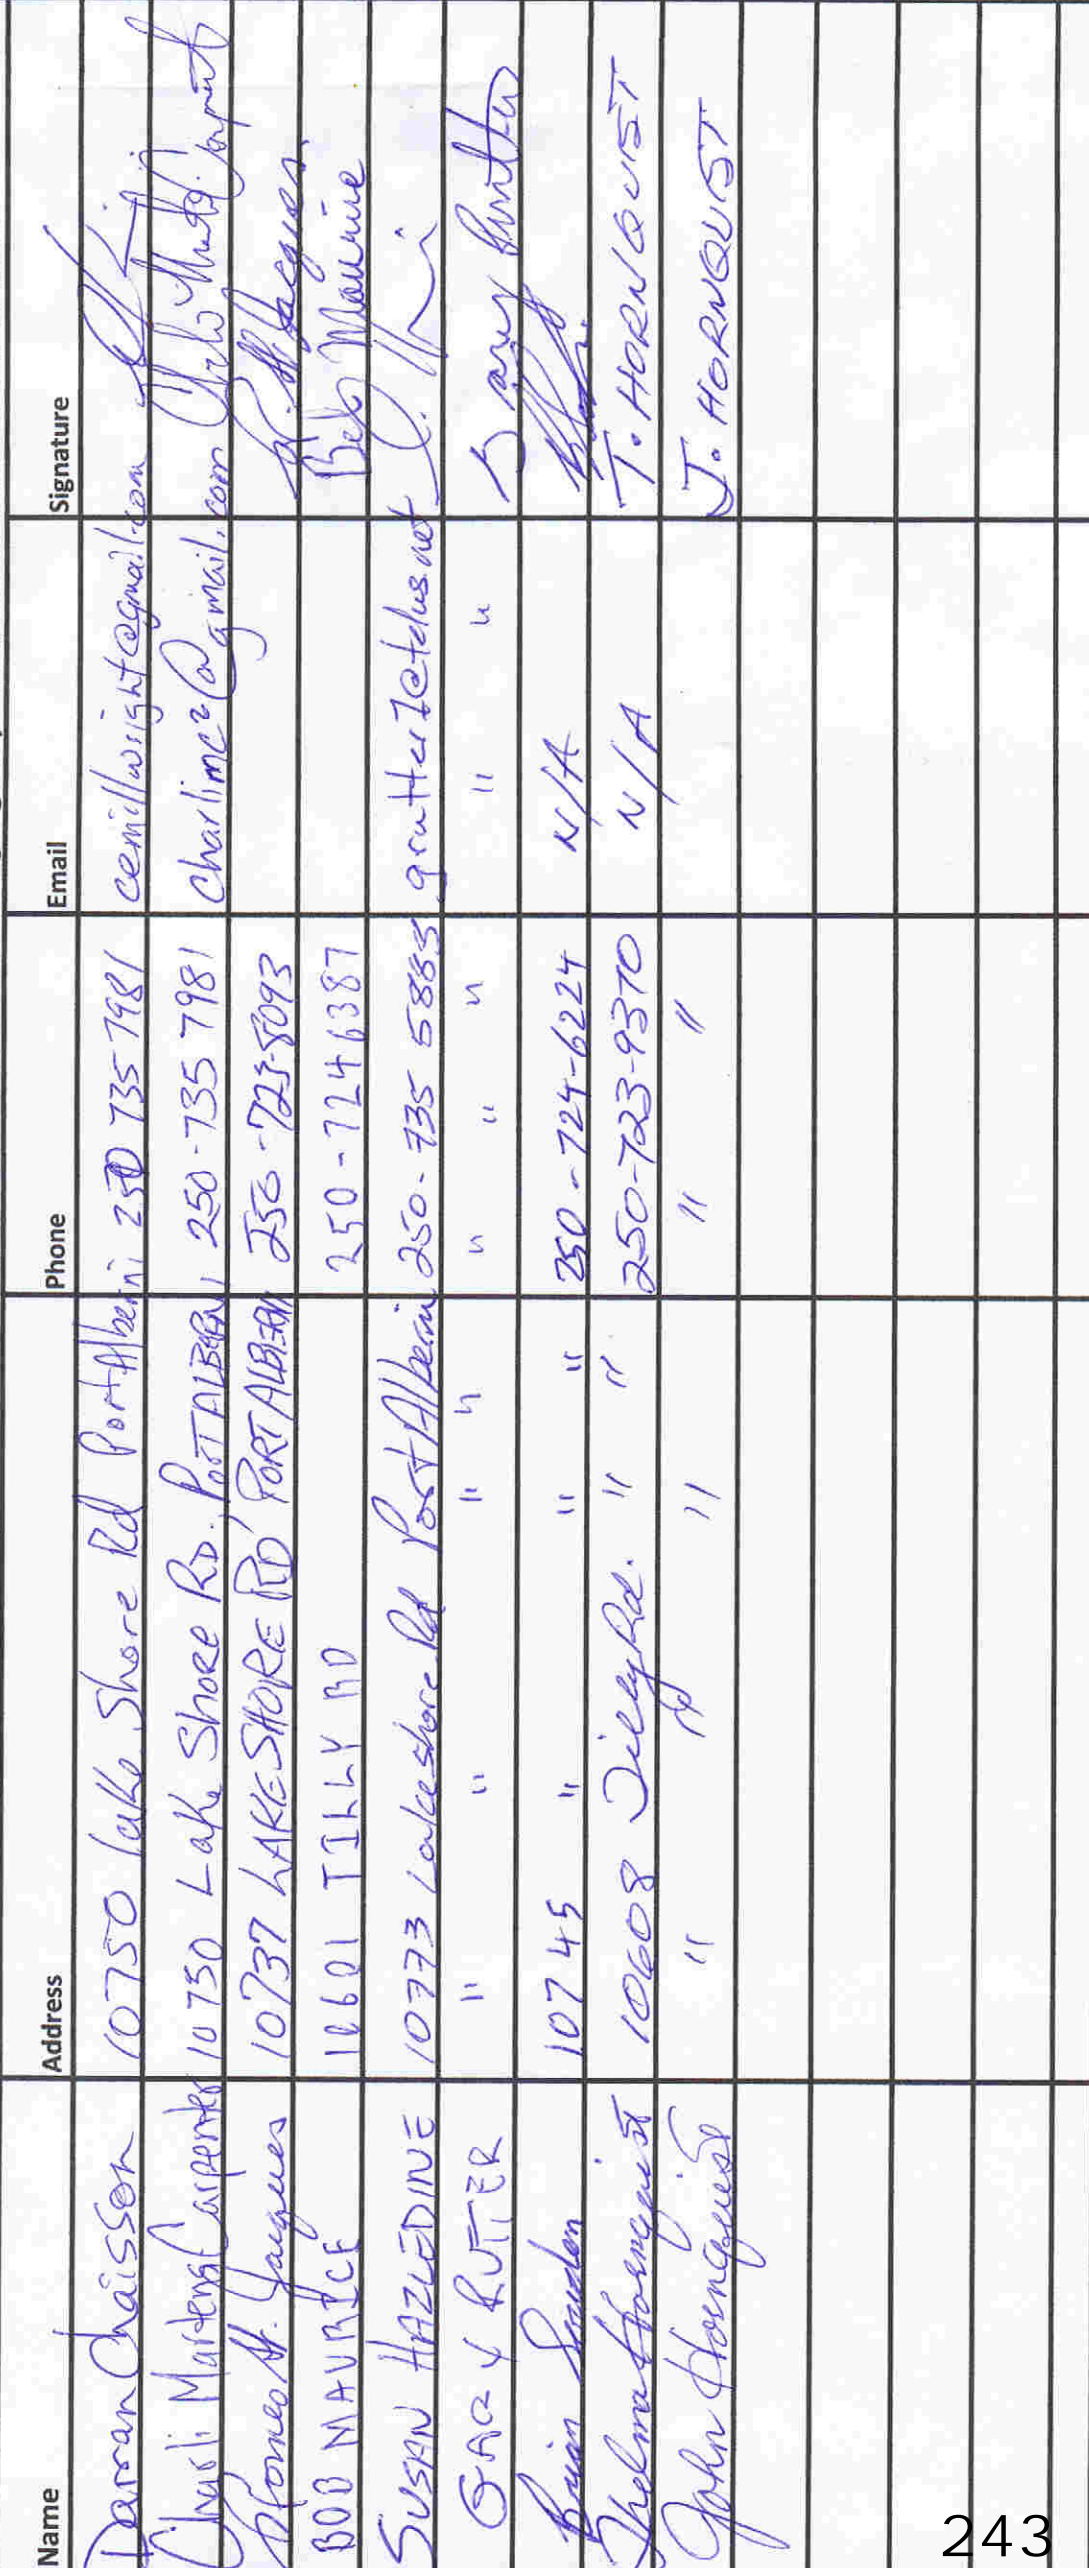 Name Address Phone Email Signature
Darran Chaisson 10750 Lake Shore Rd Port Alberni 250 735 7981 cemillwright@gmail.com
Charli Martens Carpenter 10750 Lake Shore RD. PORT ALBERNI 250-735 7981 charlimc2@gmail.com
H. Jacques 10737 LAKESHORE RD PORT ALBERNI 250-723-8093 H. Jacques.
BOB MAURICE 10601 TILLY RD 250-724 6387 Bob Maurice
SUSAN HAZLEDINE 10773 Lakeshore Rd Port Alberni 250-735 5885 grutter7@telus.net
GARY RUTTER " " " " " " " " " Gary Rutter
Brian 10745 " " " 250-724-6224 N/A
Thelma Hornquist 10608 Tilly Rd. " " 250-723-9370 N/A T. HORNQUIST
John Hornquist " " " " " J. HORNQUIST
243